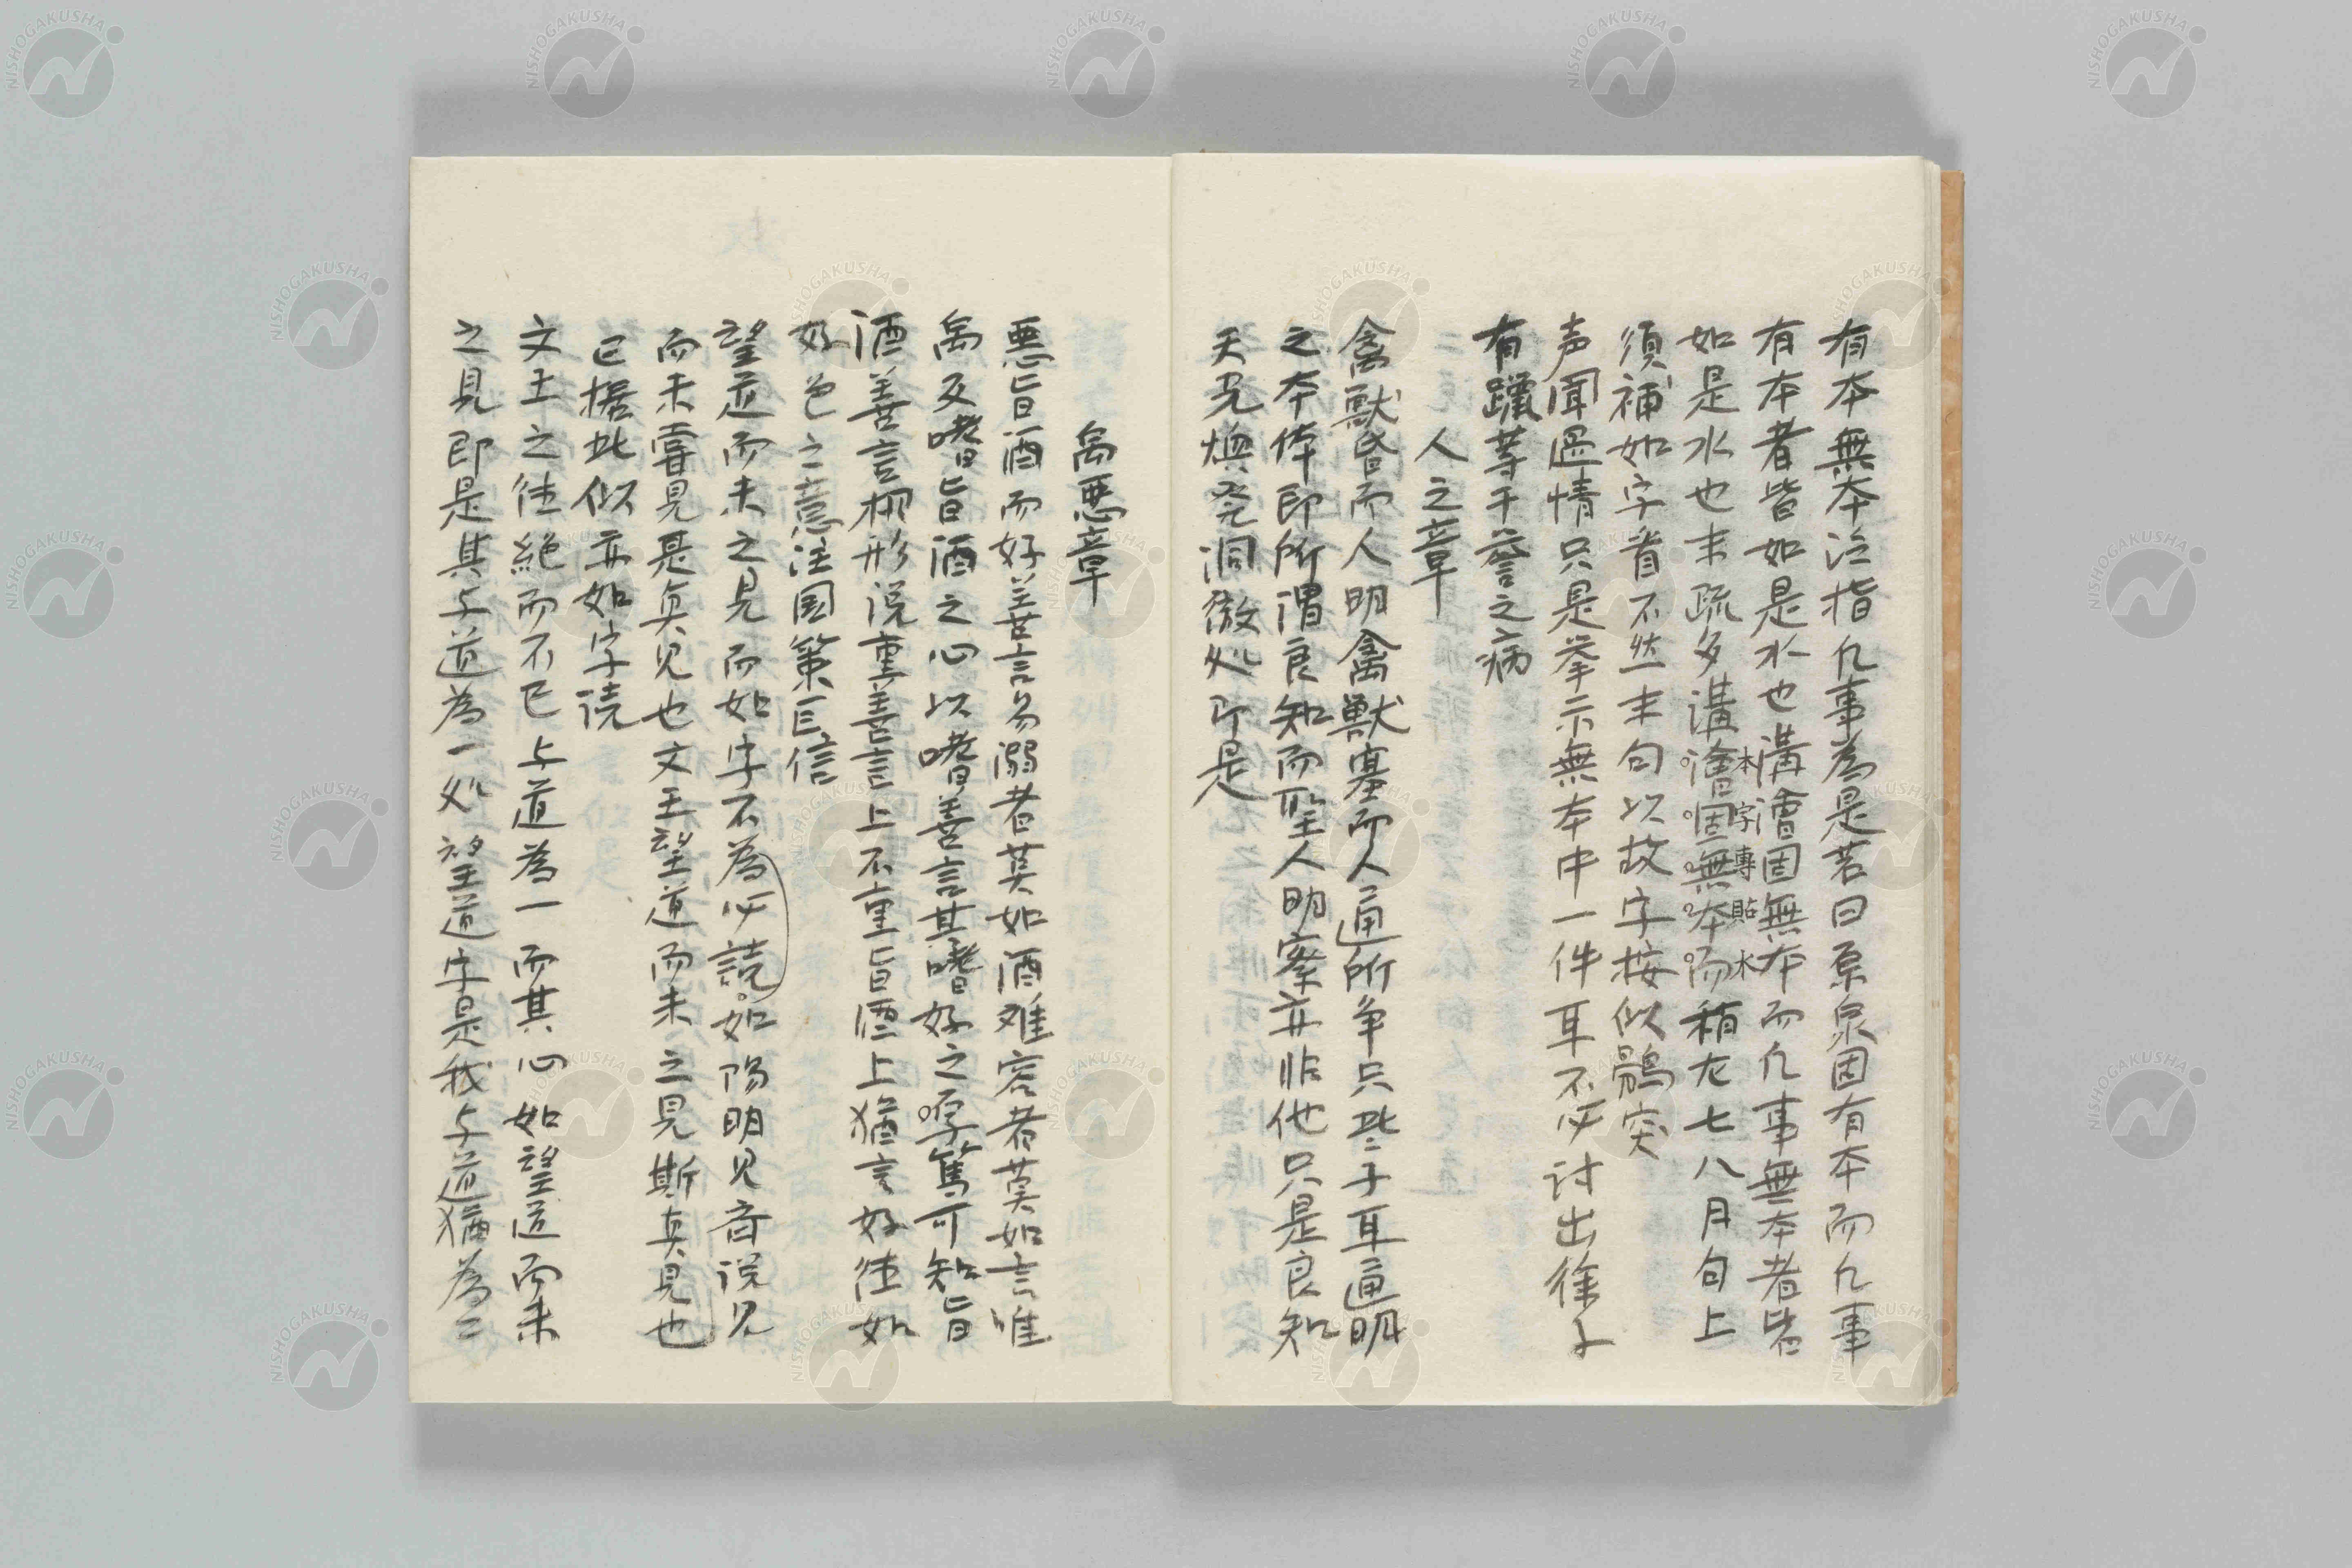 有本無本泛指凡事為是若曰原泉因有本而凡事
有本者皆如是水也溝澮固無本而凡事無本者皆
本字專貼水
如是水也末疏多溝澮固無本而稍尤七八月句上
須補如字看不然末句以故字接似鶻突
声聞過情只是挙示無本中一件耳不必討出徐子
有躐等干誉之病
人之章
禽獣昏而人明禽獣塞而人通所争只此子耳通明
之本体即所謂良知而聖人明察亦非他只是良知
天光煥発洞徹処即是
禹悪章
悪旨酒而好善言易溺者莫如酒难容者莫如言唯
禹反嗜旨酒之心以嗜善言其嗜好之深篤可知旨
酒善言相形説重善言上不重旨酒上猶言好徳如
好色之意注国策巨信
望道而未之見而如字不為必読如陽明見斎説見
而未嘗見是真見也文王望道而未之見斯真見也
已據此似亦如字読
文王之徳絶而不已与道為一而其心如望道而未
之見即是其与道為一処望道字是我与道猶為二
NISHOGAKUSHA